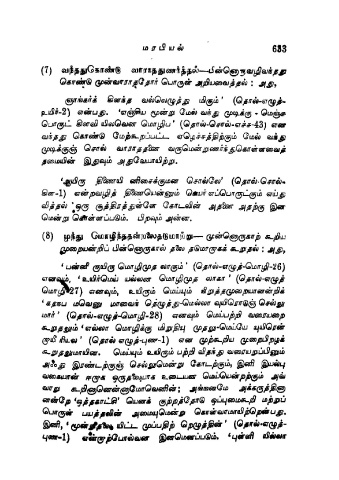 மரபியல் 633
(7) வந்ததுகொண்டு வாராததுணர்த்தல்—பின்னொருவழிவந்தது
கொண்டு முன்வாராததோர் பொருள் அறியவைத்தல் : அது,
ஞாங்கர்க் கிளந்த வல்லெழுத்து மிகும்’ (தொல்-எழுத்-
உயிர்-2) என்பது. ‘எஞ்சிய மூன்று மேல் வந்து முடிக்கு - மெஞ்சு
பொருட் கிளவி யிலவென மொழிப’ (தொல்-சொல்-எச்ச-43) என
வந்தது கொண்டு மேற்கூறப்பட்ட எழெச்சத்திற்கும் மேல் வந்து
முடிக்குஞ் சொல் வாராதன வருமென்றுணர்ந்துகொள்ளவைத்
தமையின் இதுவும் அதுவேயாயிற்று.
‘ஆயிரு திணையி னிசைக்குமன சொல்லே’ (தொல்-சொல்-
கிள-1) என்றவழித் திணையென்னும் பெயர்எப்பொருட்கும் எய்து
வித்தல் ஒரு சூத்திரத்துள்ளே கோடலின் அதனை அதற்கு இன
மென்று கொள்ளப்படும். பிறவும் அன்ன.
(8) முந்து மொழிந்ததன்றலைதடுமாற்று— முன்னொருகாற் கூறிய
முறையன்றிப் பின்னொருகால் தலை தடுமாறாகக் கூறுதல் : அது,
‘பன்னீ ருயிரு மொழிமுத லாகும்’ (தொல்-எழுத்-மொழி-26)
எனவும், ‘உயிர்மெய் யல்லன மொழிமுத லாகா’ (தொல்-எழுத்-
மொழி 27) எனவும், உயிரும் மெய்யும் கிறுத்தமுறையானன்றிக்
‘கதநப மவெனு மாவைந் தெழுத்து-மெல்லா வுயிரொடுஞ் செல்லு
மார்’ (தொல்-எழுத்-மொழி-28) எனவும் மெய்பற்றி வரையறை
கூறுதலும் ‘எல்லா மொழிக்கு மிறுதியு முதலு-மெய்யே யுயிரென்
றாயீ ரியல’ (தொல் எழுத்-புண-1) என முற்கூறிய முறைபிறழக்
கூறுதலுமாயின. மெய்யும் உயிரும் பற்றி விதந்து வரையறுப்பினும்
அஃது இரண்டற்குஞ் செல்லுமென்று கோடற்கும், இனி இயல்பு
வகையான் ஈறாக ஒருதலையாக உடையன மெய்யென்றற்கும் அவ்
வாறு கூறினானென்னாமோவெனின்; அங்ஙனமே அக்கருத்தினா
னன்றே ‘ஒத்தகாட்சி’ யெனக் குற்றத்தோடு ஒப்புமைகூறி மற்றுப்
பொருள் பயத்தலின் அமையுமென்று கொள்வாமாயிற்றென்பது.
இனி, ‘மூன்றுதலை யிட்ட முப்பதிற் றெழுத்தின்’ (தொல்-எழுத்-
புண-1) என்றாற்போல்வன இனமெனப்படும். ‘புள்ளி யில்லா